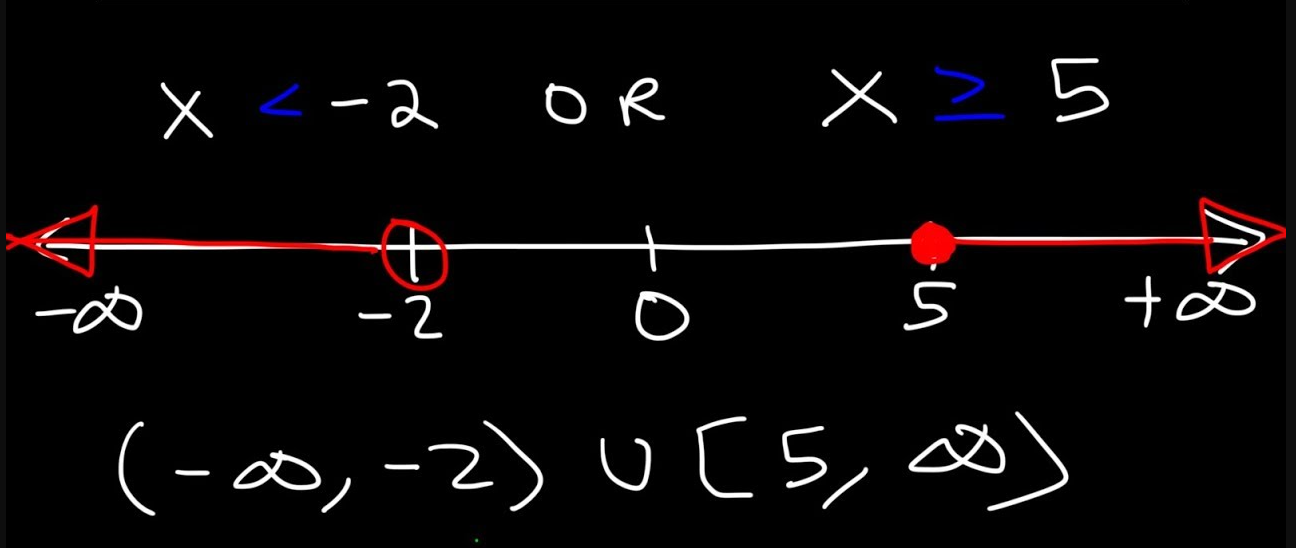 x < -2 OR x ≥ 5
-∞ -2 0 5 +∞
(-∞, -2) ∪ [5, ∞)